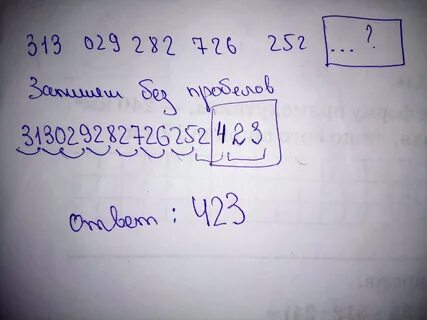 313 029 282 726 252 ... ?
Запишем без пробелов
313029282726252423
ответ: 423